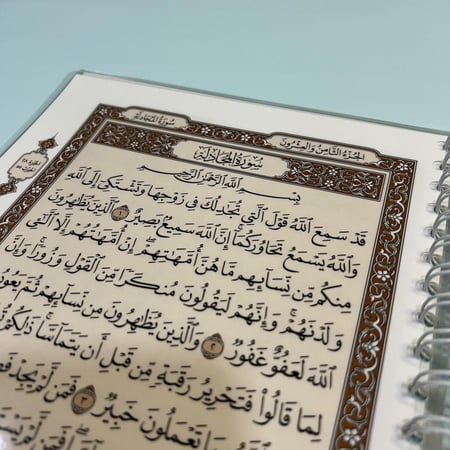 الجزء الثامن والعشرون
سورة المجادلة
سُورَةُ المُجَادلَةِ
بِسْمِ ٱللَّهِ ٱلرَّحْمَٰنِ ٱلرَّحِيمِ
قَدْ سَمِعَ ٱللَّهُ قَوْلَ ٱلَّتِي تُجَٰدِلُكَ فِي زَوْجِهَا وَتَشْتَكِيٓ إِلَى ٱللَّهِ
وَٱللَّهُ يَسْمَعُ تَحَاوُرَكُمَآۚ إِنَّ ٱللَّهَ سَمِيعُۢ بَصِيرٌ ١ ٱلَّذِينَ يُظَٰهِرُونَ
مِنكُم مِّن نِّسَآئِهِم مَّا هُنَّ أُمَّهَٰتِهِمْۖ إِنْ أُمَّهَٰتُهُمْ إِلَّا ٱلَّٰٓـِٔي
وَلَدْنَهُمْۚ وَإِنَّهُمْ لَيَقُولُونَ مُنكَرًا مِّنَ ٱلْقَوْلِ وَزُورًاۚ وَإِنَّ
ٱللَّهَ لَعَفُوٌّ غَفُورٌ ٢ وَٱلَّذِينَ يُظَٰهِرُونَ مِن نِّسَآئِهِمْ ثُمَّ يَعُودُونَ
لِمَا قَالُوا۟ فَتَحْرِيرُ رَقَبَةٍ مِّن قَبْلِ أَن يَتَمَآسَّاۚ ذَٰلِكُمْ
بِهِۦۚ وَٱللَّهُ بِمَا تَعْمَلُونَ خَبِيرٌ ٣ فَمَن لَّمْ يَجِدْ